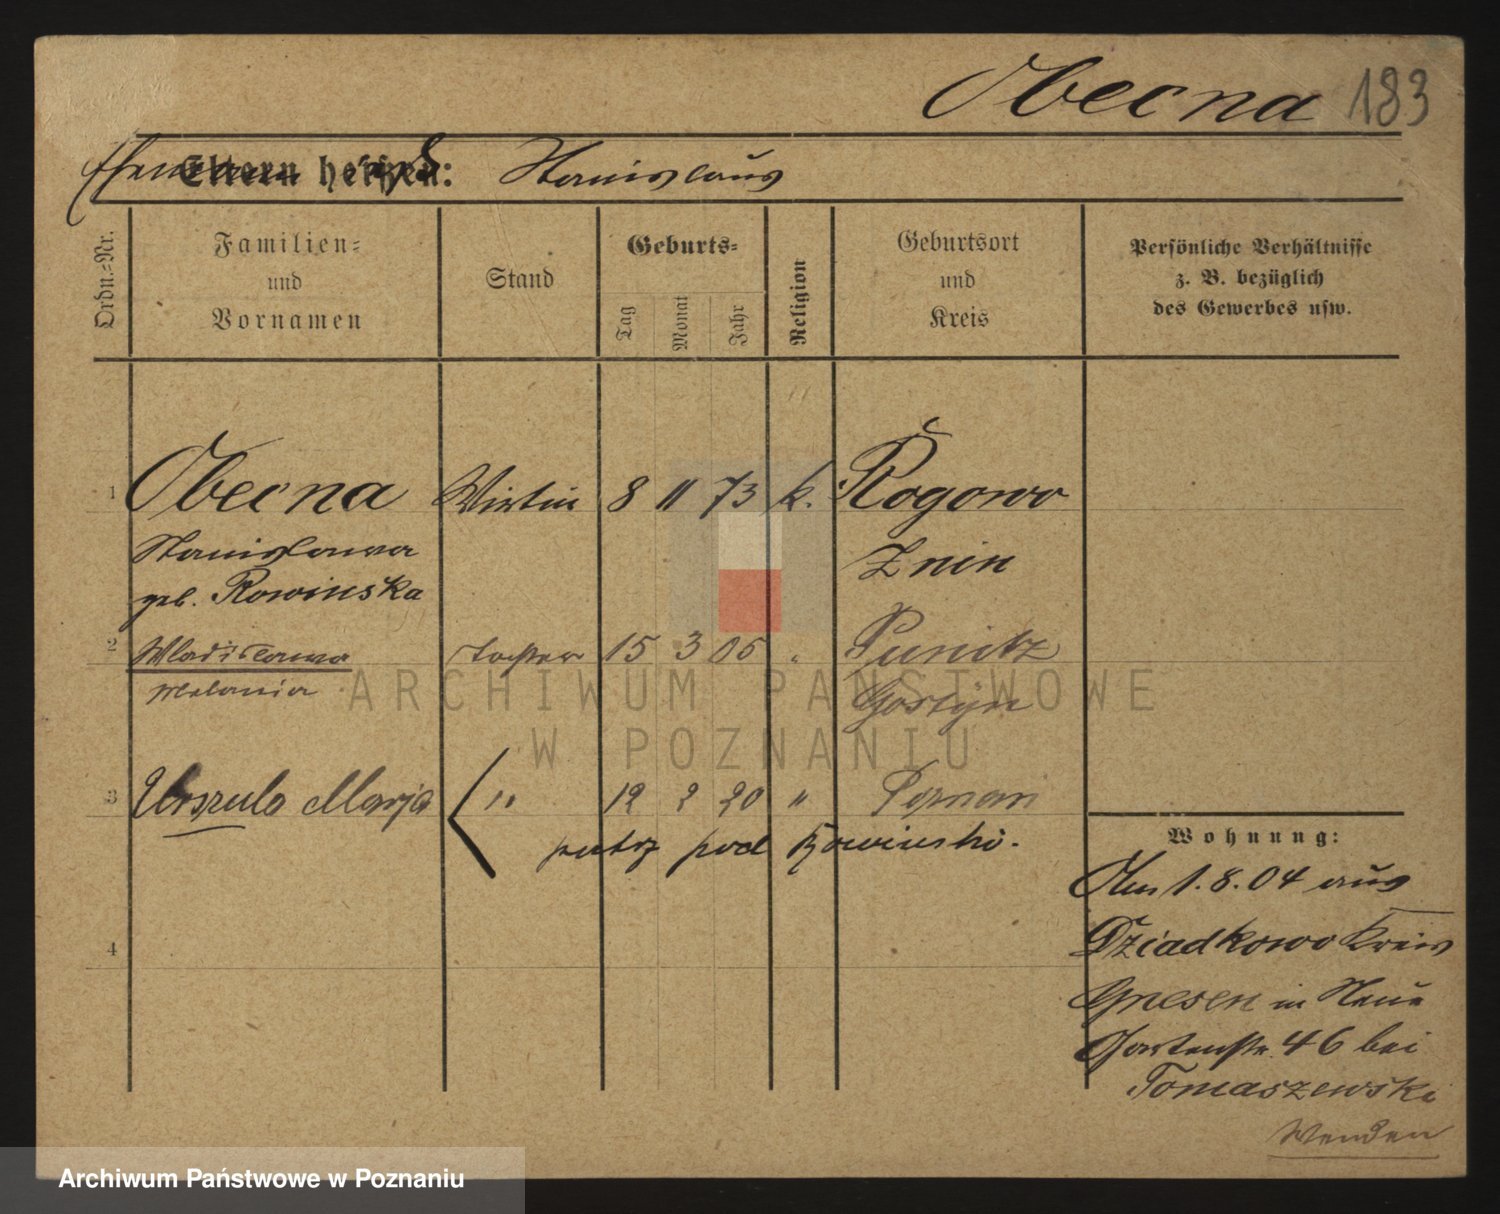 Obecna 183
Eltern heißen: Stanislaus
Ordn.-Nr.
Familien-
und
Vornamen
Stand
Geburts-
Tag
Monat
Jahr
Religion
Geburtsort
und
Kreis
Persönliche Verhältnisse
z. B. bezüglich
des Gewerbes usw.
1 Obecna Wirtin 8 11 73 k. Rogowo
Stanislawa Znin
geb. Rowinska
2 Wladislawa Tochter 15 3 05 " Punitz
Melania Gostyn
3 Urszula Marja " 12 2 20 " Poznań
patrz pod Rowinski.
4
Wohnung:
Am 1.8.04 aus
Dziadkowo Kreis
Gnesen in Neue
Gartenstr. 46 bei
Tomaszewski
Wenden
ARCHIWUM PAŃSTWOWE
W POZNANIU
Archiwum Państwowe w Poznaniu